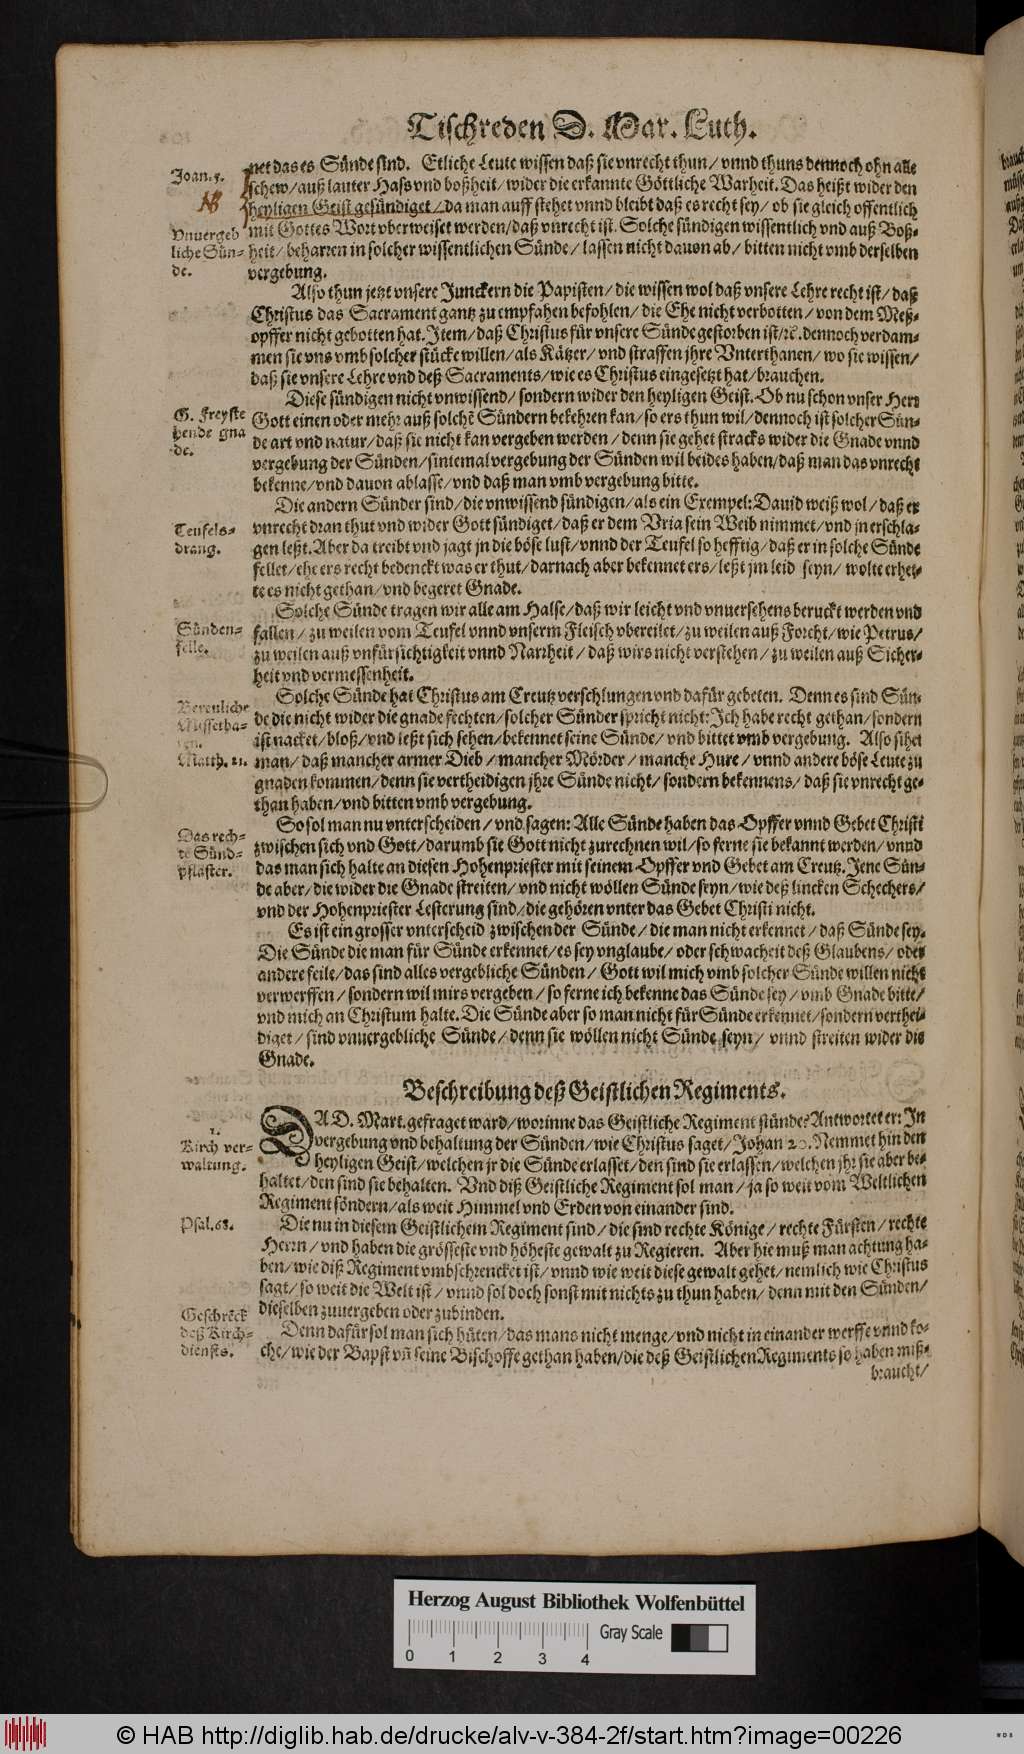 Tischreden D. Mar. Luth.
net das es Sünde sind. Etliche Leute wissen daß sie vnrecht thun/ vnnd thuns dennoch ohn alle
schew/ auß lauter Haß vnd boßheit/ wider die erkannte Göttliche Warheit. Das heißt wider den
heyligen Geist gesündiget/ da man auff stehet vnnd bleibt daß es recht sey/ ob sie gleich offentlich
mit Gottes Wort vberweiset werden/ daß vnrecht ist. Solche sündigen wissentlich vnd auß Boß-
heit/ beharren in solcher wissentlichen Sünde/ lassen nicht dauon ab/ bitten nicht vmb derselben
vergebung.
Joan. 5.
NB
Vnuergeb
liche Sün-
de.
Also thun jetzt vnsere Junckern die Papisten/ die wissen wol daß vnsere Lehre recht ist/ daß
Christus das Sacrament gantz zu empfahen befohlen/ die Ehe nicht verbotten/ von dem Meß-
opffer nicht gebotten hat. Item/ daß Christus für vnsere Sünde gestorben ist/ ꝛc. dennoch verdam-
men sie vns vmb solcher stücke willen/ als Kätzer/ vnd straffen jhre Vnterthanen/ wo sie wissen/
daß sie vnsere Lehre vnd deß Sacraments/ wie es Christus eingesetzt hat/ brauchen.
Diese sündigen nicht vnwissend/ sondern wider den heyligen Geist. Ob nu schon vnser Herr
Gott einen oder mehr auß solchē Sündern bekehren kan/ so ers thun wil/ dennoch ist solcher Sün-
de art vnd natur/ daß sie nicht kan vergeben werden/ denn sie gehet stracks wider die Gnade vnnd
vergebung der Sünden/ sintemal vergebung der Sünden wil beides haben/ daß man das vnrecht
bekenne/ vnd dauon ablasse/ vnd daß man vmb vergebung bitte.
G. freyste
hende gna
de.
Die andern Sünder sind/ die vnwissend sündigen/ als ein Exempel: Dauid weiß wol/ daß er
vnrecht dran thut vnd wider Gott sündiget/ daß er dem Vria sein Weib nimmet/ vnd jn erschla-
gen leßt. Aber da treibt vnd jagt jn die böse lust/ vnnd der Teufel so hefftig/ daß er in solche Sünde
fellet/ ehe ers recht bedenckt was er thut/ darnach aber bekennet ers/ leßt jm leid seyn/ wolte er het-
te es nicht gethan/ vnd begeret Gnade.
Teufels-
drang.
Solche Sünde tragen wir alle am Halse/ daß wir leicht vnd vnuersehens beruckt werden vnd
fallen/ zu weilen vom Teufel vnnd vnserm Fleisch vbereilet/ zu weilen auß Forcht/ wie Petrus/
zu weilen auß vnfürsichtigkeit vnnd Narrheit/ daß wirs nicht verstehen/ zu weilen auß Sicher-
heit vnd vermessenheit.
Sünden-
felle.
Solche Sünde hat Christus am Creutz verschlungen vnd dafür gebeten. Denn es sind Sün-
de die nicht wider die gnade fechten/ solcher Sünder spricht nicht: Ich habe recht gethan/ sondern
ist nacket/ bloß/ vnd leßt sich sehen/ bekennet seine Sünde/ vnd bittet vmb vergebung. Also sihet
man/ daß mancher armer Dieb/ mancher Mörder/ manche Hure/ vnnd andere böse Leute zu
gnaden kommen/ denn sie vertheidigen jhre Sünde nicht/ sondern bekennens/ daß sie vnrecht ge-
than haben/ vnd bitten vmb vergebung.
Missetha-
Matth. 21.
So sol man nu vnterscheiden/ vnd sagen: Alle Sünde haben das Opffer vnnd Gebet Christi
zwischen sich vnd Gott/ darumb sie Gott nicht zurechnen wil/ so ferne sie bekannt werden/ vnnd
das man sich halte an diesen Hohenpriester mit seinem Opffer vnd Gebet am Creutz. Jene Sün-
de aber/ die wider die Gnade streiten/ vnd nicht wöllen Sünde seyn/ wie deß lincken Schechers/
vnd der Hohenpriester Lesterung sind/ die gehören vnter das Gebet Christi nicht.
Das rech-
te Sünd-
pflaster.
Es ist ein grosser vnterscheid zwischen der Sünde/ die man nicht erkennet/ daß Sünde sey.
Die Sünde die man für Sünde erkennet/ es sey vnglaube/ oder schwacheit deß Glaubens/ oder
andere feile/ das sind alles vergebliche Sünden/ Gott wil mich vmb solcher Sünde willen nicht
verwerffen/ sondern wil mirs vergeben/ so ferne ich bekenne das Sünde sey/ vmb Gnade bitte/
vnd mich an Christum halte. Die Sünde aber so man nicht für Sünde erkennet/ sondern verthei-
diget/ sind vnuergebliche Sünde/ denn sie wöllen nicht Sünde seyn/ vnnd streiten wider die
Gnade.
Beschreibung deß Geistlichen Regiments.
DA D. Mart. gefraget ward/ worinne das Geistliche Regiment stünde? Antwortet er: In
vergebung vnd behaltung der Sünden/ wie Christus saget/ Johan 20. Nemmet hin den
heyligen Geist/ welchen jr die Sünde erlasset/ den sind sie erlassen/ welchen jhr sie aber be-
haltet/ den sind sie behalten. Vnd diß Geistliche Regiment sol man/ ja so weit vom Weltlichen
Regiment söndern/ als weit Himmel vnd Erden von einander sind.
1.
Kirch ver-
waltung.
Die nu in diesem Geistlichem Regiment sind/ die sind rechte Könige/ rechte Fürsten/ rechte
Herrn/ vnd haben die grösseste vnd höheste gewalt zu Regieren. Aber hie muß man achtung ha-
ben/ wie diß Regiment vmbschrencket ist/ vnnd wie weit diese gewalt gehet/ nemlich wie Christus
sagt/ so weit die Welt ist/ vnnd sol doch sonst mit nichts zu thun haben/ denn mit den Sünden/
dieselben zuuergeben oder zubinden.
Psal. 68.
Denn dafür sol man sich hüten/ das mans nicht menge/ vnd nicht in einander werffe vnnd ko-
che/ wie der Bapst vñ seine Bischoffe gethan haben/ die deß Geistlichen Regiments so haben miß-
braucht/
Geschrēck
deß Kirch-
diensts.
Herzog August Bibliothek Wolfenbüttel
Gray Scale
0 1 2 3 4
© HAB http://diglib.hab.de/drucke/alv-v-384-2f/start.htm?image=00226